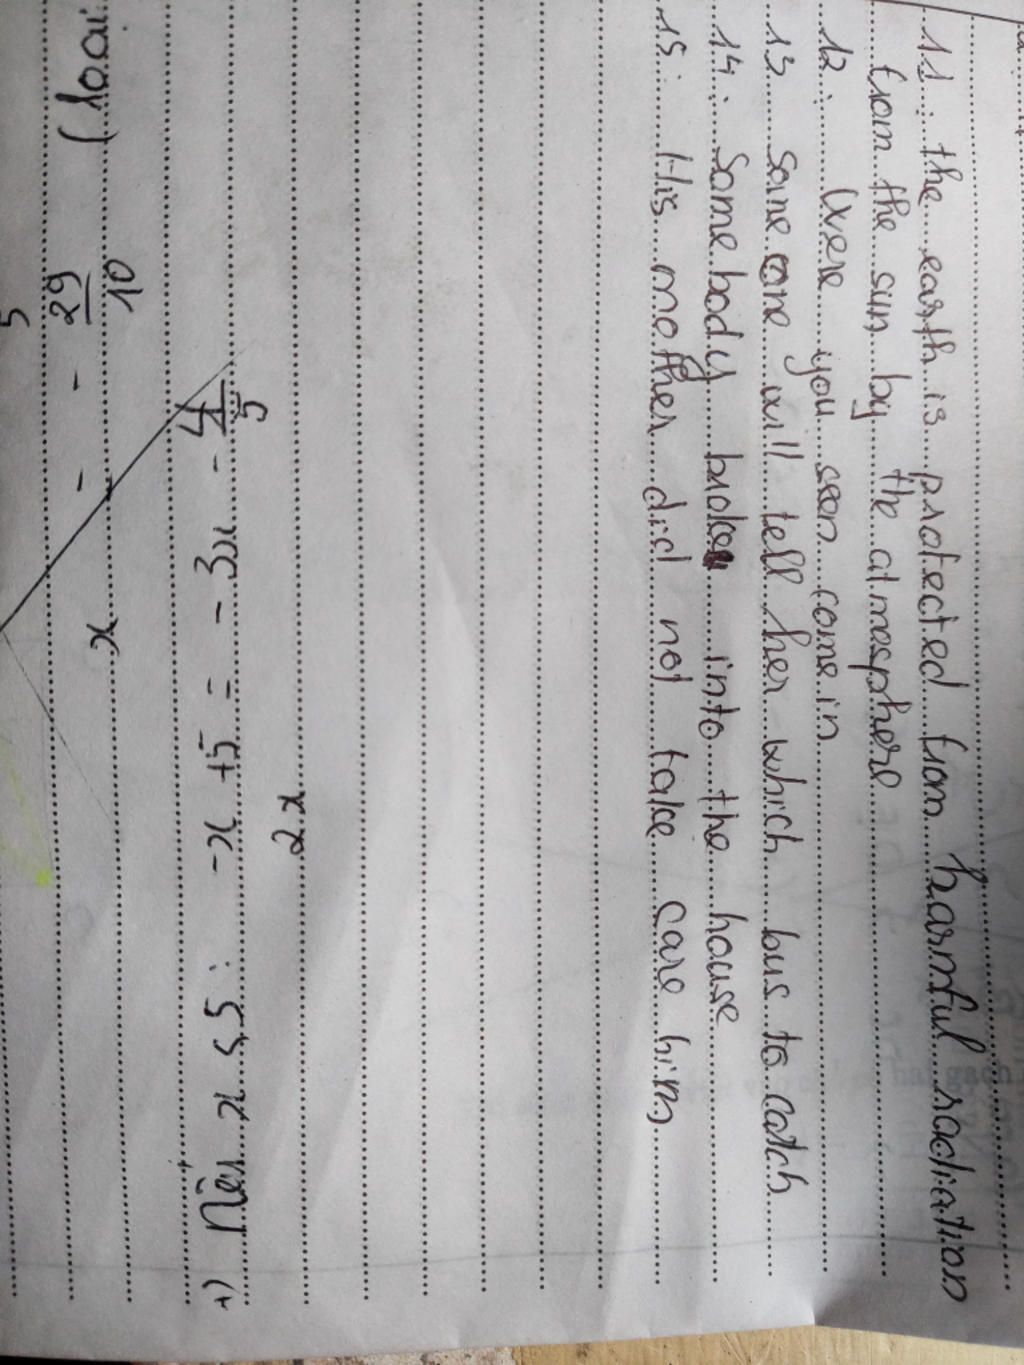 11 : the earth is protected from harmful radiation
from the sun by the atmosphere
12 : Were you seen come in
13 some one will tell her which bus to catch
14 : Somebody broke into the house
15 : His mother did not take care him
2x
+) Nếu x ≤ 5 : -x + 5 = -3x - 4/5
x = - 29/10 (loại
5